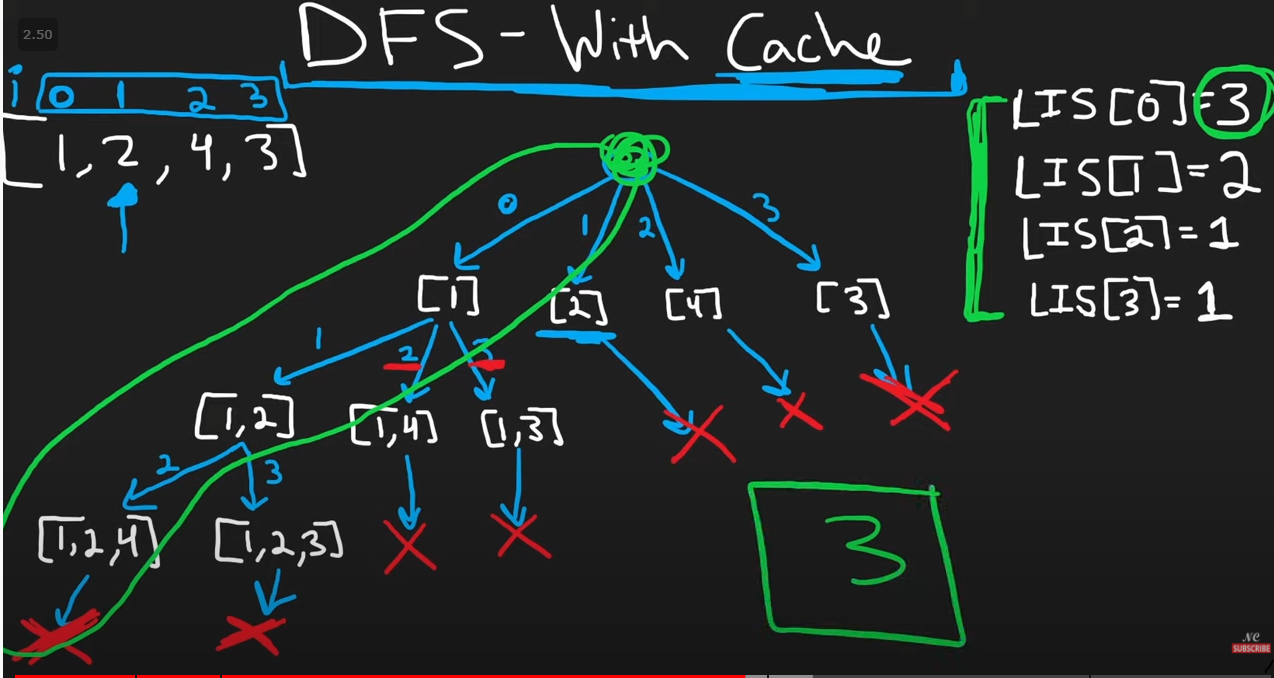 2.50
DFS - With Cache
i 0 1 2 3
[1, 2, 4, 3]
LIS[0]=3
LIS[1]=2
LIS[2]=1
LIS[3]=1
0 1 2 3
[1] [2] [4] [3]
1 2 3
[1,2] [1,4] [1,3]
2 3
[1,2,4] [1,2,3]
3
NC
SUBSCRIBE